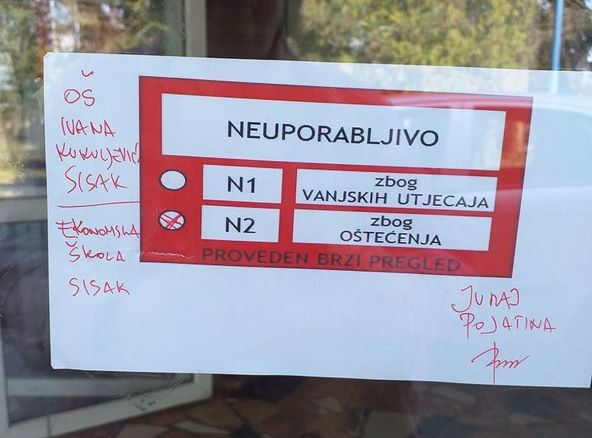 OŠ
IVANA
KUKULJEVIĆA
SISAK
EKONOMSKA
ŠKOLA
SISAK
NEUPORABLJIVO
N1
zbog
VANJSKIH UTJECAJA
N2
zbog
OŠTEĆENJA
PROVEDEN BRZI PREGLED
JURAJ
POJATINA